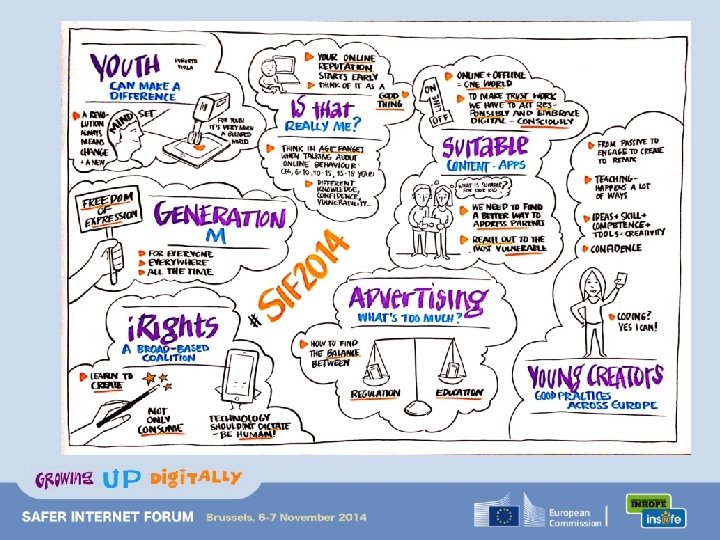 YOUTH
ROBERTO
VIOLA
CAN MAKE A
DIFFERENCE
A REVO-
LUTION
ALWAYS
MEANS
CHANGE
+ A NEW
MIND SET
FOR YOUTH
IT'S VERY MUCH
A BLENDED
WORLD
YOUR ONLINE
REPUTATION
STARTS EARLY
THINK OF IT AS A
GOOD
THING
IS that
REALLY ME?
THINK IN AGE RANGES
WHEN TALKING ABOUT
ONLINE BEHAVIOUR
DIFFERENT
KNOWLEDGE,
CONFIDENCE,
VULNERABILITY...
ON
LINE
OFF
ONLINE + OFFLINE
= ONE WORLD
TO MAKE TRUST WORK
WE HAVE TO ACT RES-
PONSIBLY AND EMBRACE
DIGITAL - CONSCIOUSLY
SUITABLE
CONTENT + APPS
WHAT IS SUITABLE
FOR OUR KID?
WE NEED TO FIND
A BETTER WAY TO
ADDRESS PARENTS
REACH OUT TO THE
MOST VULNERABLE
FROM PASSIVE TO
ENGAGE TO CREATE
TO REMIX
TEACHING-
HAPPENS A LOT
OF WAYS
IDEAS + SKILL +
COMPETENCE +
TOOLS = CREATIVITY
CONFIDENCE
FREEDOM
OF
EXPRESSION
GENERATION
M
FOR EVERYONE
EVERYWHERE
ALL THE TIME
# SIF 2014
iRights
A BROAD-BASED
COALITION
LEARN TO
CREATE
NOT
ONLY
CONSUME
TECHNOLOGY
SHOULDN'T DICTATE
- BE HUMAN!
ADVERTISING
WHAT'S TOO MUCH?
HOW TO FIND
THE BALANCE
BETWEEN
REGULATION
EDUCATION
CODING?
YES I CAN!
YOUNG CREATORS
GOOD PRACTICES
ACROSS EUROPE
GROWING UP DIGITALLY
SAFER INTERNET FORUM Brussels, 6-7 November 2014
European
Commission
INHOPE
ins@fe